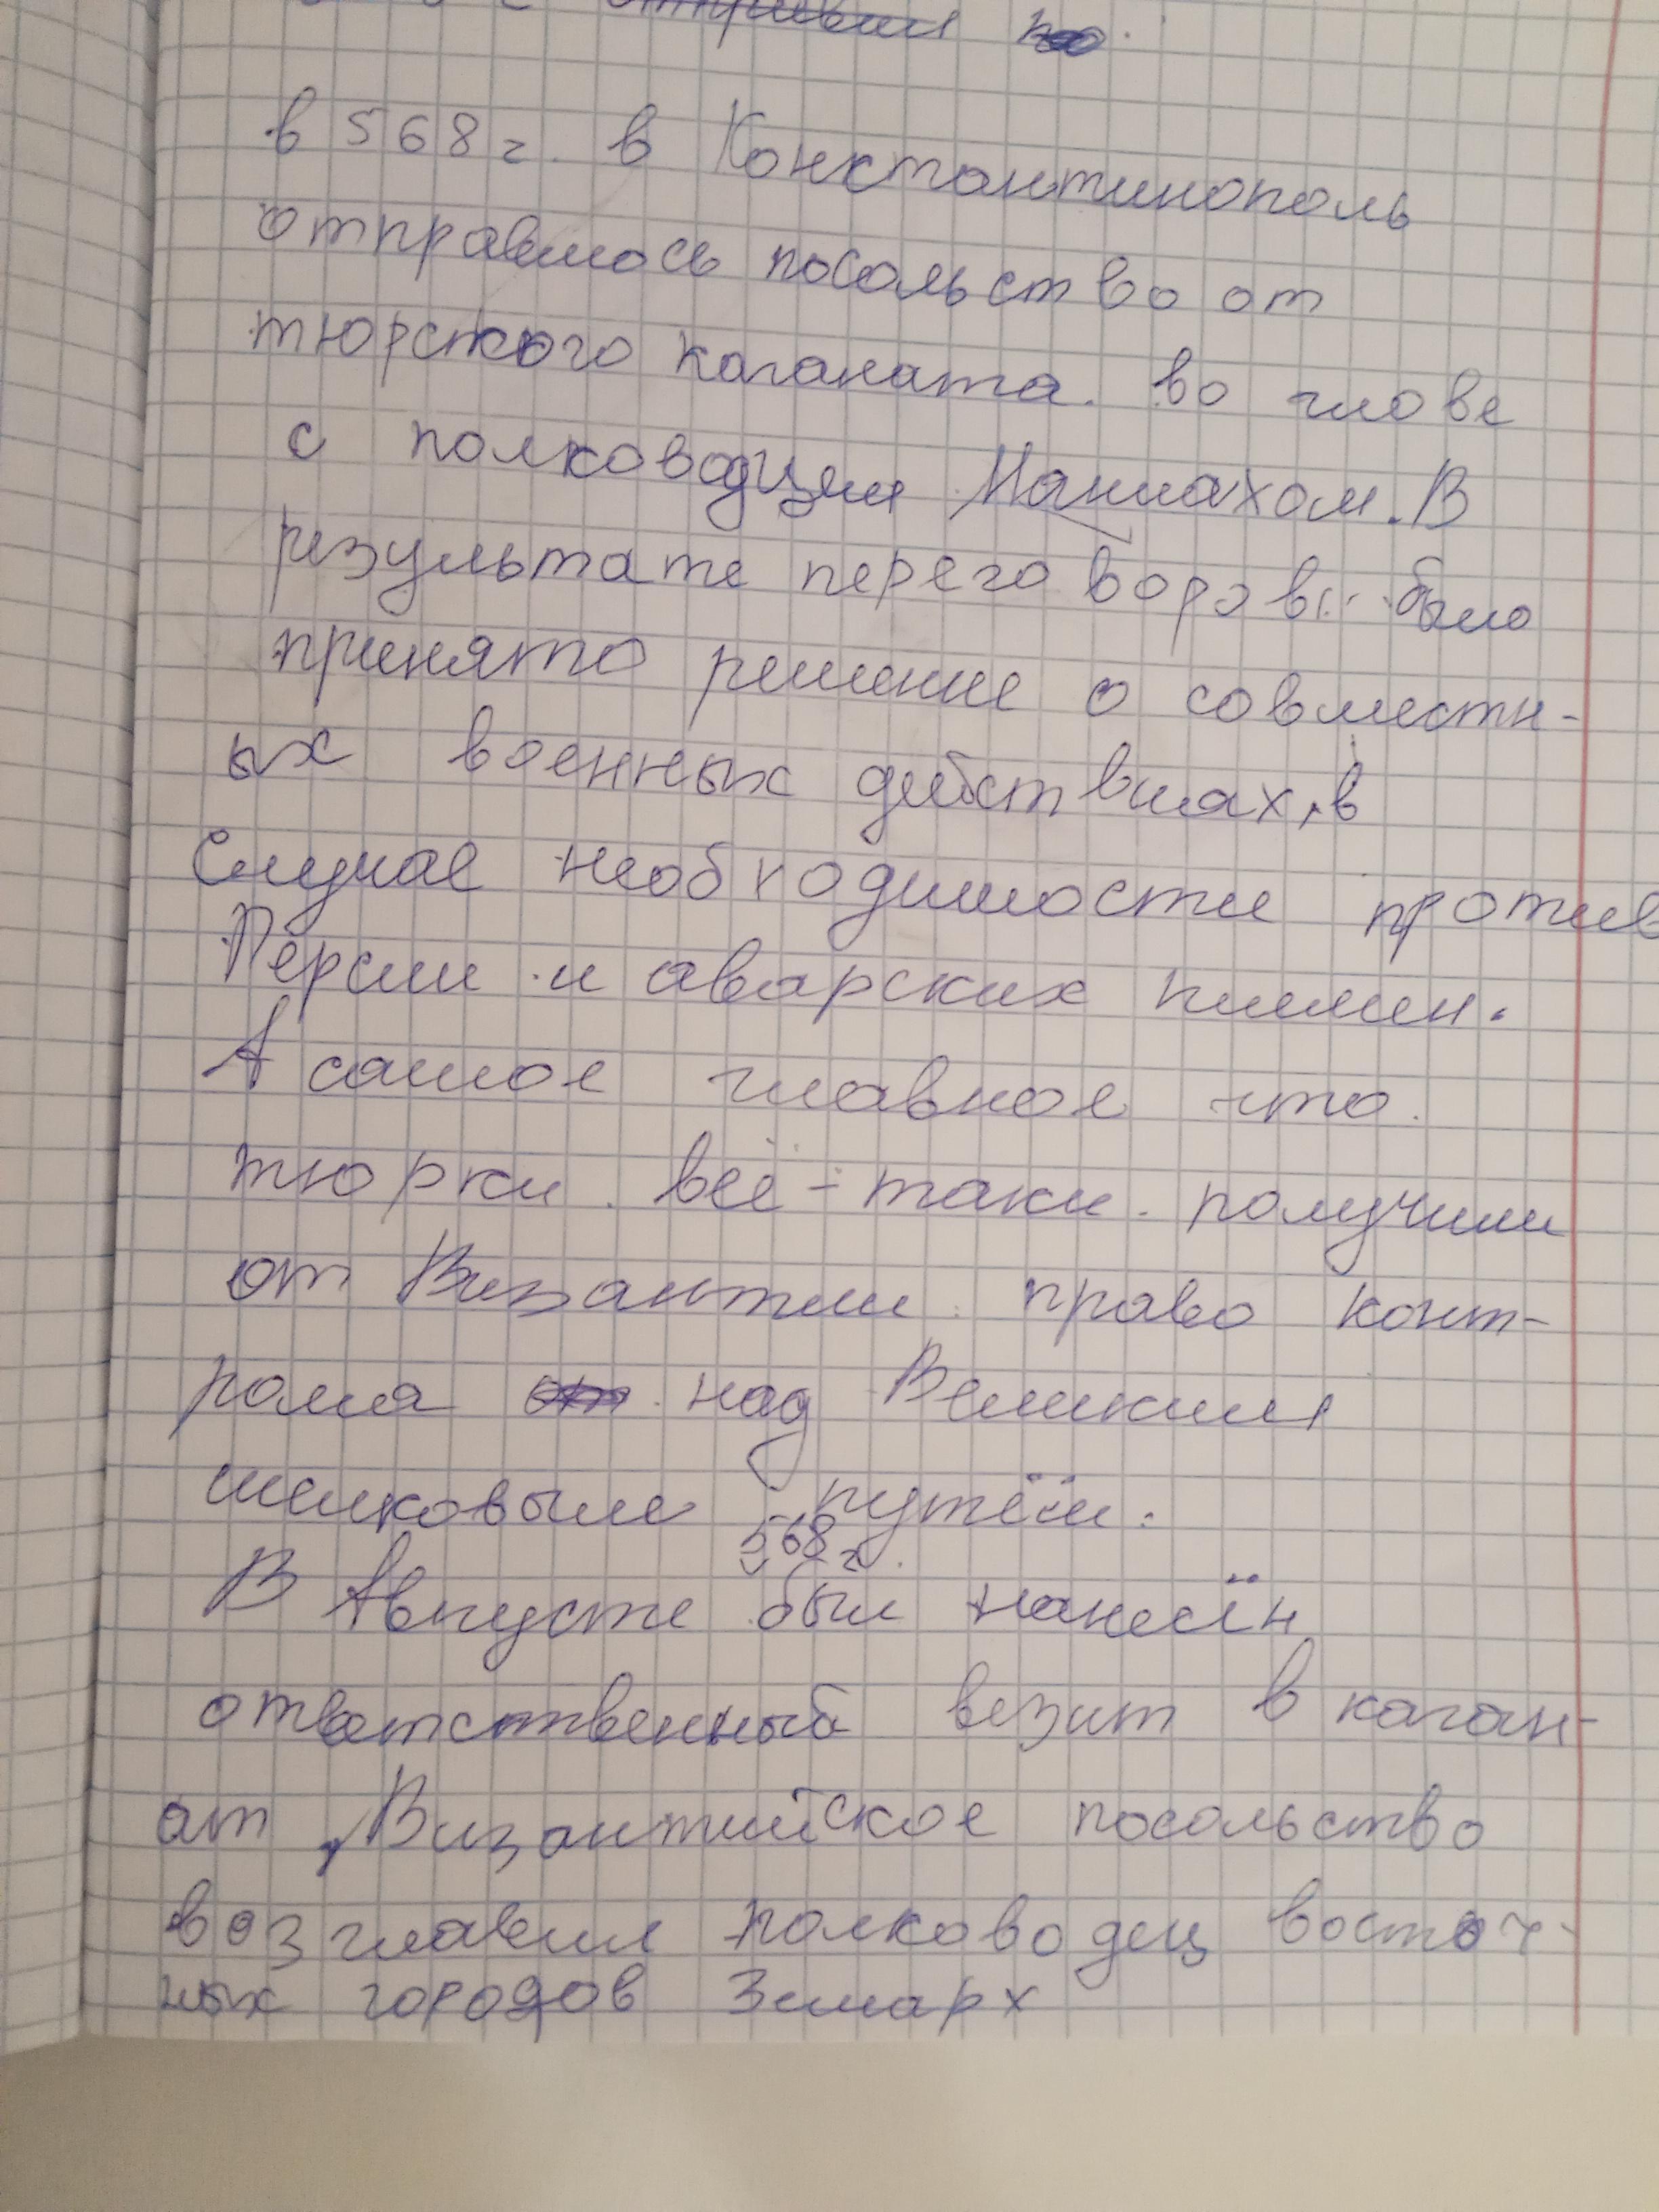 в 568 г. в Константинополь
отправилось посольство от
тюрского каганата. во главе
с полководцем Маниахом. В
результате переговоров было
принято решение о совместн-
ых военных действиях, в
случае необходимости против
Персии и аварских племен.
А самое главное что
тюрки всё-таки получили
от Византии право конт-
роля над Великим
шелковым путём.
568 г.
В Августе был нанесён
ответственный везит в каган-
ат, Византийское посольство
возглавил полководец восточ-
ных городов Зимарх